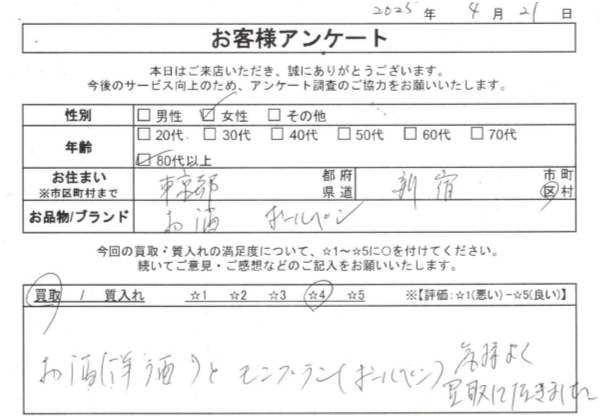 2025 年 4 月 21 日
お客様アンケート
本日はご来店いただき、誠にありがとうございます。
今後のサービス向上のため、アンケート調査のご協力をお願いいたします。
性別 □ 男性 ☑ 女性 □ その他
年齢 □ 20代 □ 30代 □ 40代 □ 50代 □ 60代 □ 70代
☑ 80代以上
お住まい ※市区町村まで 東京都 都府県道 新宿 市町区村
お品物/ブランド お酒 ボールペン
今回の買取・質入れの満足度について、☆1～☆5に○を付けてください。
続いてご意見・ご感想などのご記入をお願いいたします。
買取 / 質入れ ☆1 ☆2 ☆3 ☆4 ☆5 ※【評価:☆1(悪い)-☆5(良い)】
お酒(洋酒)とモンブラン(ボールペン)気持よく
買取いただきました